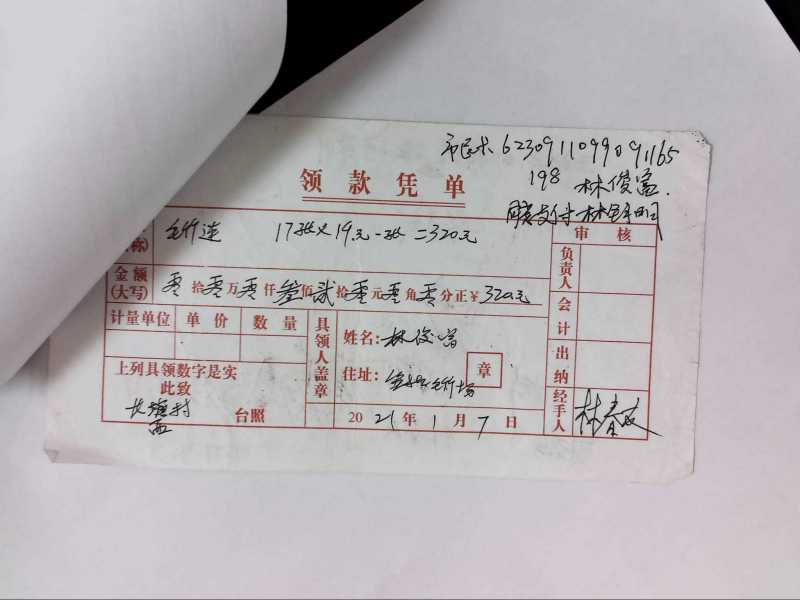 市民卡 6230911099091165
198 林俊富.
领款凭单
称) 毛竹连 17张×19元一张=320元
审核
负责人
金额(大写) 零拾零万零仟叁佰贰拾零元零角零分正¥320元
会计
计量单位 单价 数量
具领人盖章
姓名:林俊富
章
上列具领数字是实
住址: 毛竹场
出纳
此致
台照
2021年1月7日
经手人